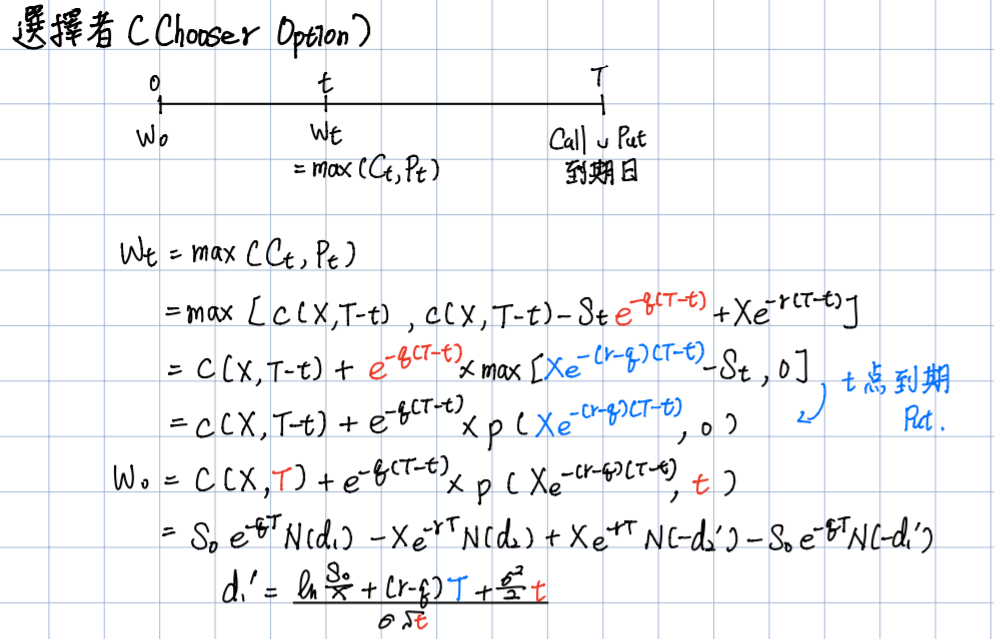 選擇者 (Chooser Option)
0 t T
W₀ Wt Call ∪ Put
= max(Ct, Pt) 到期日
Wt = max (Ct, Pt)
= max [c(X,T-t) , c(X,T-t) - St e^{-q(T-t)} + Xe^{-r(T-t)}]
= C(X,T-t) + e^{-q(T-t)} × max [Xe^{-(r-q)(T-t)} - St , 0]
t点到期
= c(X,T-t) + e^{-q(T-t)} × p (Xe^{-(r-q)(T-t)} , 0)
Put.
W₀ = C(X,T) + e^{-q(T-t)} × p (Xe^{-(r-q)(T-t)} , t)
= S₀ e^{-qT} N(d₁) - Xe^{-rT} N(d₂) + Xe^{-rT} N(-d₂') - S₀ e^{-qT} N(-d₁')
d₁' = \frac{ln \frac{S₀}{X} + (r-q)T + \frac{σ²}{2} t}{σ√t}